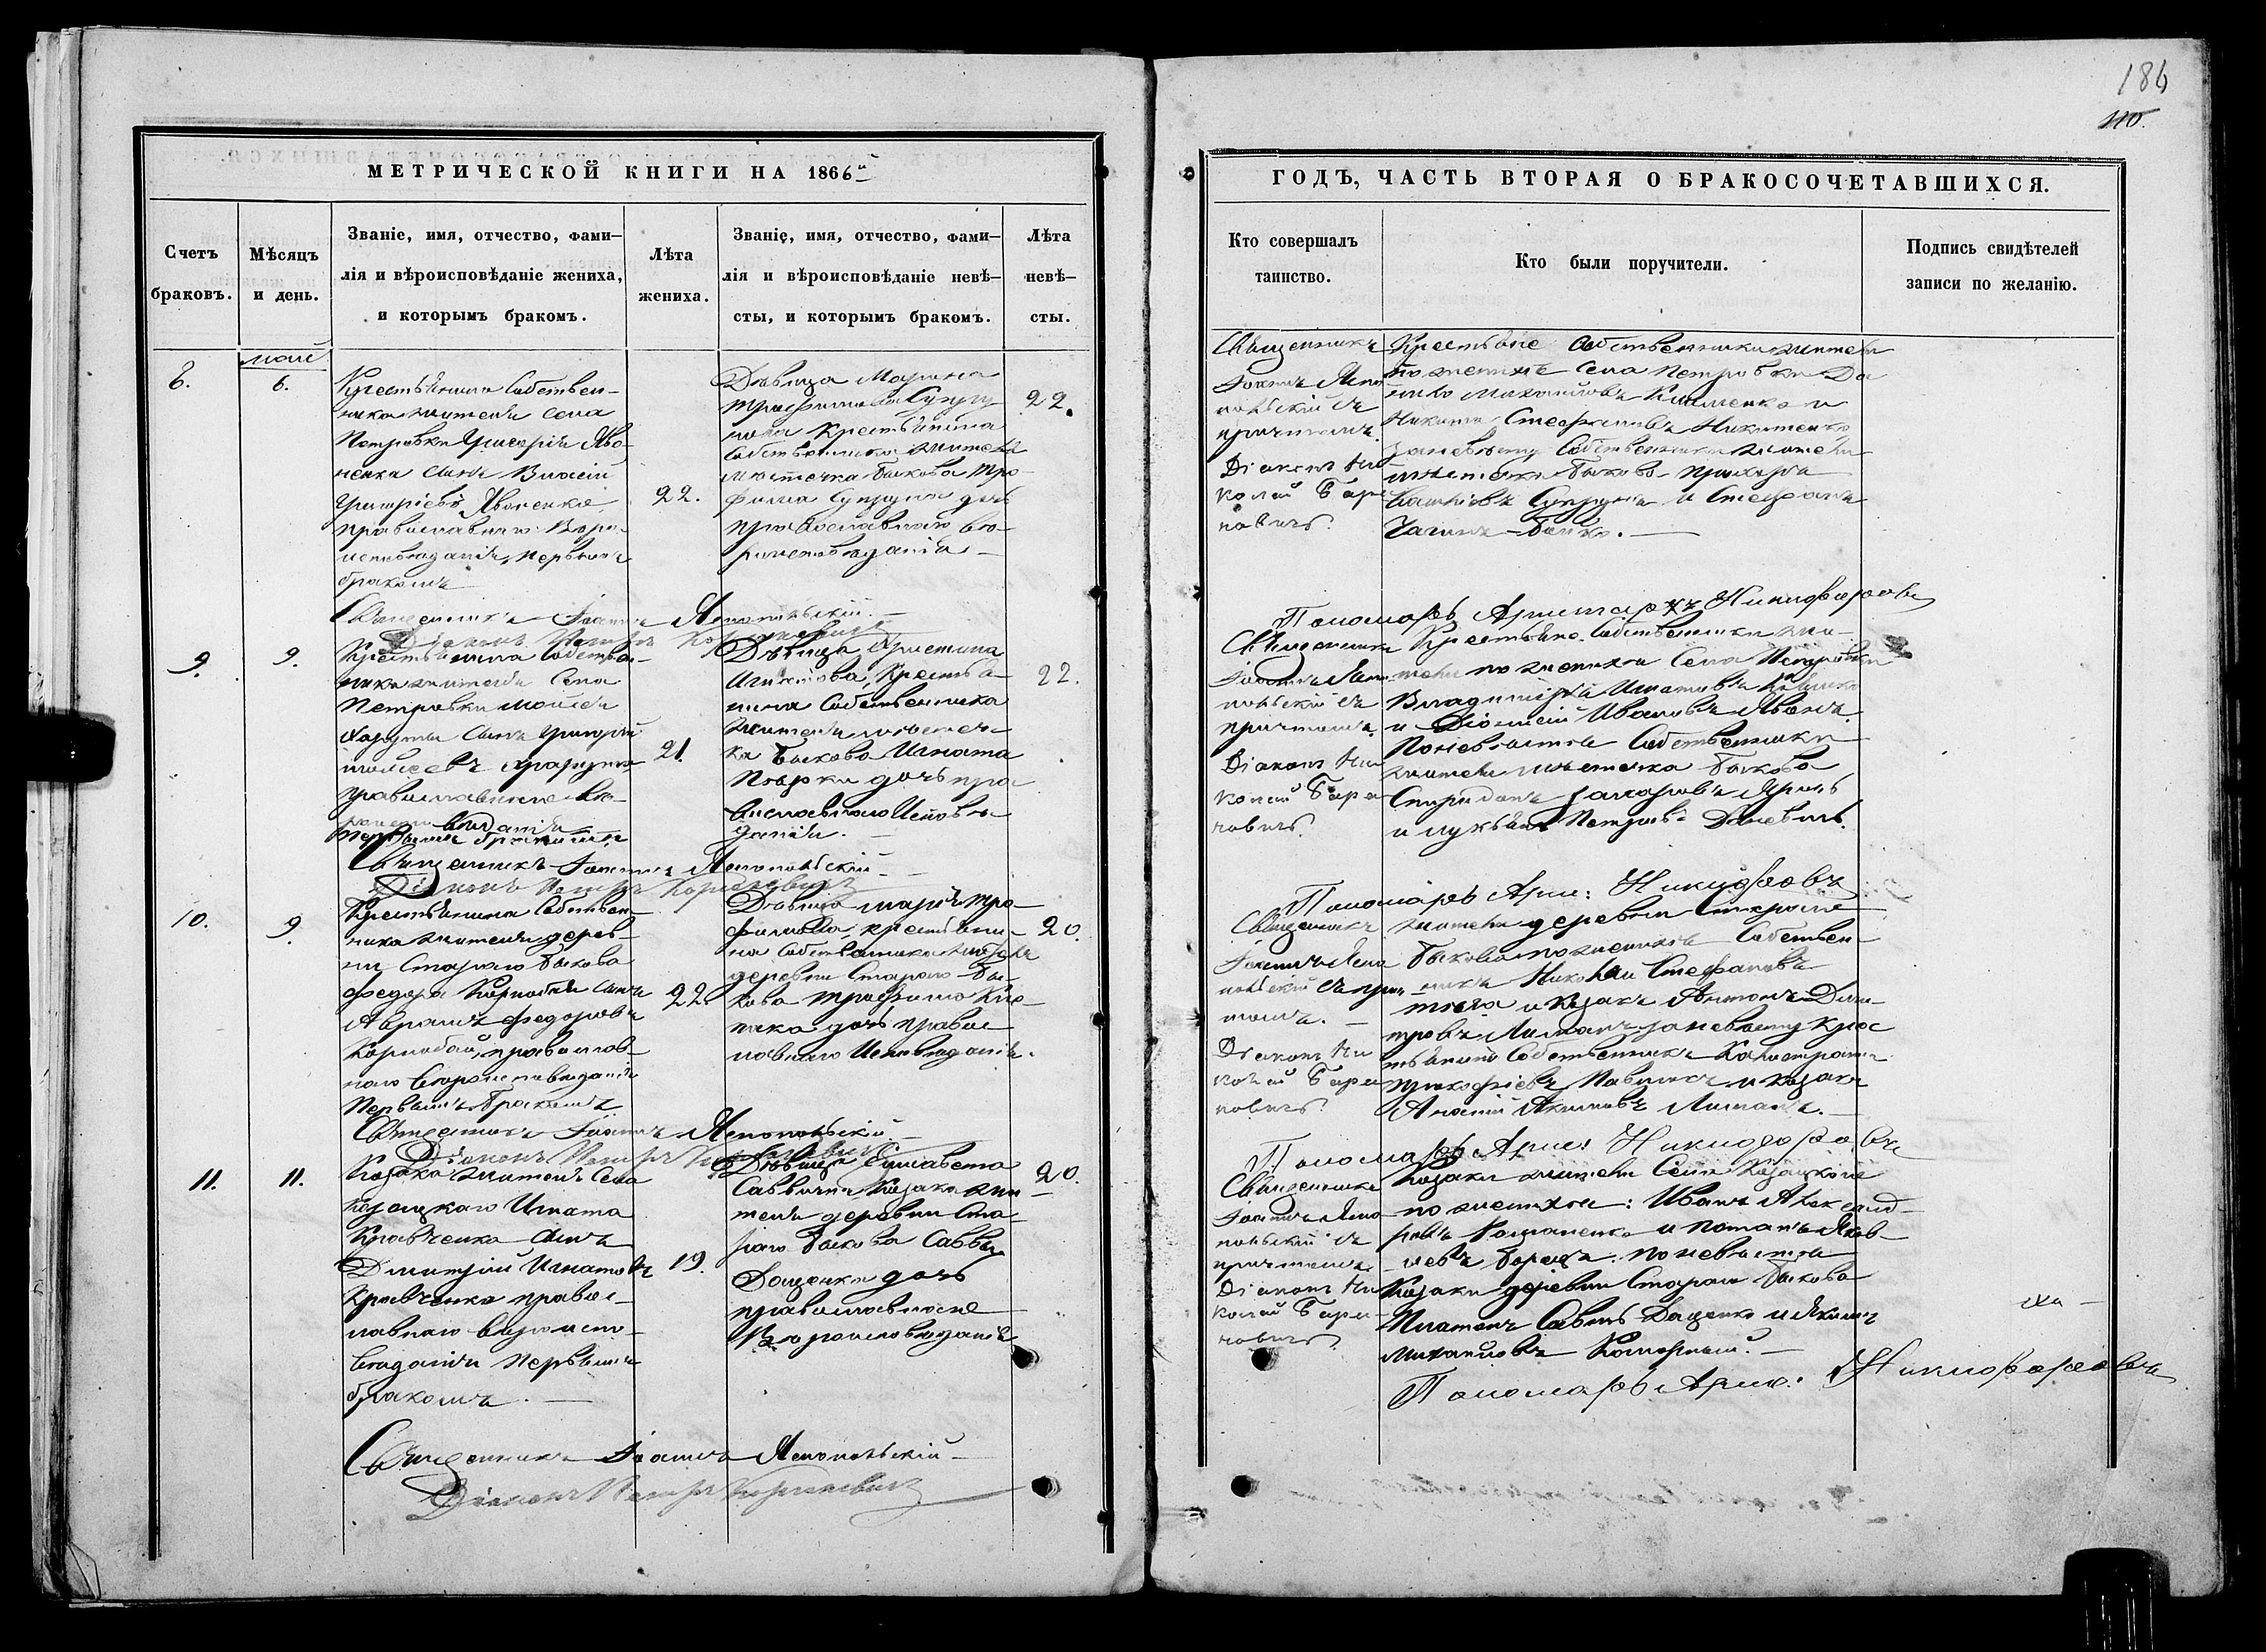 186
110.
МЕТРИЧЕСКОЙ КНИГИ НА 1866й
Счетъ браковъ.
Мѣсяцъ и день.
Званіе, имя, отчество, фами-
лія и вѣроисповѣданіе жениха,
и которымъ бракомъ.
Лѣта жениха.
Званіе, имя, отчество, фами-
лія и вѣроисповѣданіе невѣ-
сты, и которымъ бракомъ.
Лѣта невѣ-
сты.
май
6.
Крестьянина Собствен-
ника жителя села
Петровки Григорія Яво-
ненка сынъ
Явоненко
православнаго Веро-
исповѣданія, первымъ
бракомъ
22.
Дѣвица Марина
Трофимова Супру-
нова Крестьянина
Собственника жителя
мѣстечка Быкова Тро-
фима Супруна дочь
православнаго вѣ-
роисповѣданія
22.
Священникъ Іоаннъ Ямпольскій
Діаконъ Петръ
9.
9.
Крестьянина Собствен-
ника жителя Села
Петровки Моисея
сынъ Григорій
Моисеевъ
православнаго вѣ-
первымъ бракомъ
21.
Дѣвица Христина
Игнатова, Крестья-
нина Собственника
жителя мѣстеч-
ка Быкова Игната
дочь пра-
вославнаго Исповѣ-
данія.
22.
Священникъ Іоаннъ Ямпольскій
Діаконъ Петръ
10.
9.
Крестьянина Собствен-
ника жителя дерев-
ни Стараго Быкова
Федора сынъ
Авраамъ Федоровъ
православ-
наго Вероисповѣданія
Первымъ бракомъ
22.
Дѣвица Марія Тро-
фимова, крестьяни-
на Собственника жителя
деревни Стараго Бы-
кова Трофима
дочь правос-
лавнаго Исповѣданія.
20.
Священникъ Іоаннъ Ямпольскій
Діаконъ Петръ
11.
11.
Козака жителя Села
Козацкаго Игната
Кравченка сынъ
Дмитрій Игнатовъ
Кравченко правос-
лавнаго вероиспо-
вѣданія Первымъ
бракомъ.
19.
Дѣвица Елисавета
Саввина Козака жи-
теля деревни Ста-
раго Быкова Саввы
Даценка дочь
православнаго
Вѣроисповѣданія
20.
Священникъ Іоаннъ Ямпольскій
Діаконъ Петръ
ГОДЪ, ЧАСТЬ ВТОРАЯ О БРАКОСОЧЕТАВШИХСЯ.
Кто совершалъ таинство.
Кто были поручители.
Подпись свидѣтелей записи по желанію.
Священникъ
Іоаннъ Ямпо-
льскій съ
причтомъ.
Діаконъ Ни-
колай Бара-
новичъ.
Крестьяне Собственники жители
по женихѣ Села Петровки Да-
Михайловъ Клименко и
Никита Стефановъ Никитенко
за невѣсту Собственники жители
мѣстечка Быкова
Супрунъ и Стефанъ
Бойко.
Пономарь Аристархъ Никифоровъ
Священникъ
Іоаннъ Ямпо-
льскій съ
причтомъ.
Діаконъ Ни-
колай Бара-
новичъ.
Крестьяне Собственники жи-
тели по женихѣ Села Петровки
Владиміръ Игнатовъ
и Діонисій Ивановъ
По невѣстѣ Собственники
жители мѣстечка Быкова
Спиридонъ Захаровъ
и Лукьянъ Петровъ
Пономарь Арис: Никифоровъ
Священникъ
Іоаннъ Ямпо-
льскій съ прич-
томъ.
Діаконъ Ни-
колай Бара-
новичъ.
жители деревни Стараго
Быкова по женихѣ Собствен-
никъ Николай Стефановъ
и Козакъ Антонъ Дми-
тровъ Лиманъ за невѣсту Крес-
тьянинъ Собственникъ Калистратъ
Прокофіевъ Павликъ и Козакъ
Акимовъ Лиманъ.
Пономарь Арис: Никифоровъ
Священникъ
Іоаннъ Ямпо-
льскій съ
причтомъ
Діаконъ Ни-
колай Бара-
новичъ
Козаки жители Села Козацкого
по женихѣ: Иванъ Александ-
ровъ Романенко и Потапъ Яков-
левъ По невѣстѣ
Козаки деревни Стараго Быкова
Платонъ Савинъ Даценко и Якимъ
Михайловъ
Пономарь Арис: Никифоровъ